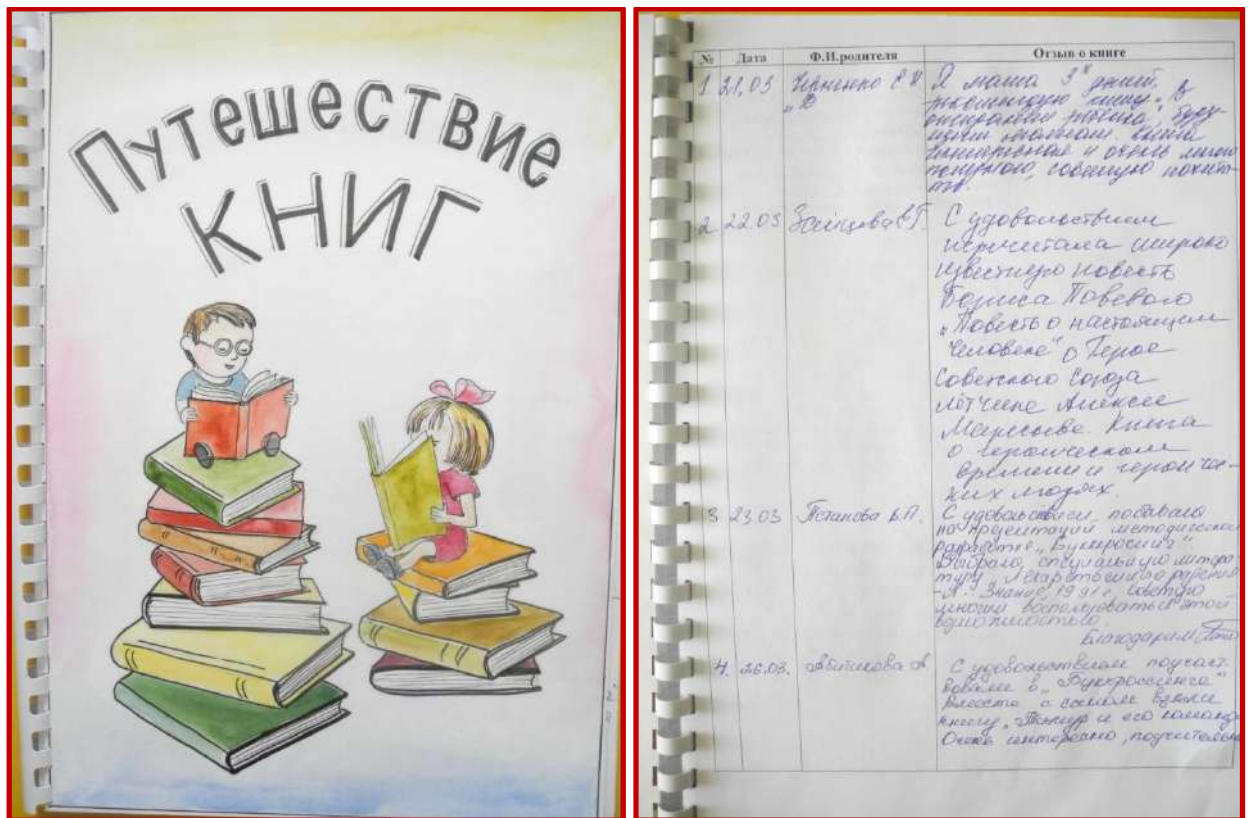 Путешествие
КНИГ
№ Дата Ф.И.родителя Отзыв о книге
1 21.03 Я мама 3х
книгу „В
ожидании
и очень много
советую
2 22.03 С удовольствием
перечитала широко
известную повесть
Бориса Полевого
„Повесть о настоящем
человеке" о Герое
Советского Союза
лётчике Алексее
Маресьеве. Книга
о героическом
времени и героичес-
ких людях.
3 23.03 С удовольствием, побывала
на презентации методической
разработке „Буккроссинг"
Выбрала, специальную литера-
туру Лекарственные растения
Знание, 1991 г, советую
многим воспользоваться этой
возможностью.
Благодарим
4. 26.03. С удовольствием поучаст-
вовали в „Буккроссинге"
Вместе с сыном взяли
книгу „Тимур и его команда
Очень интересно, поучительно